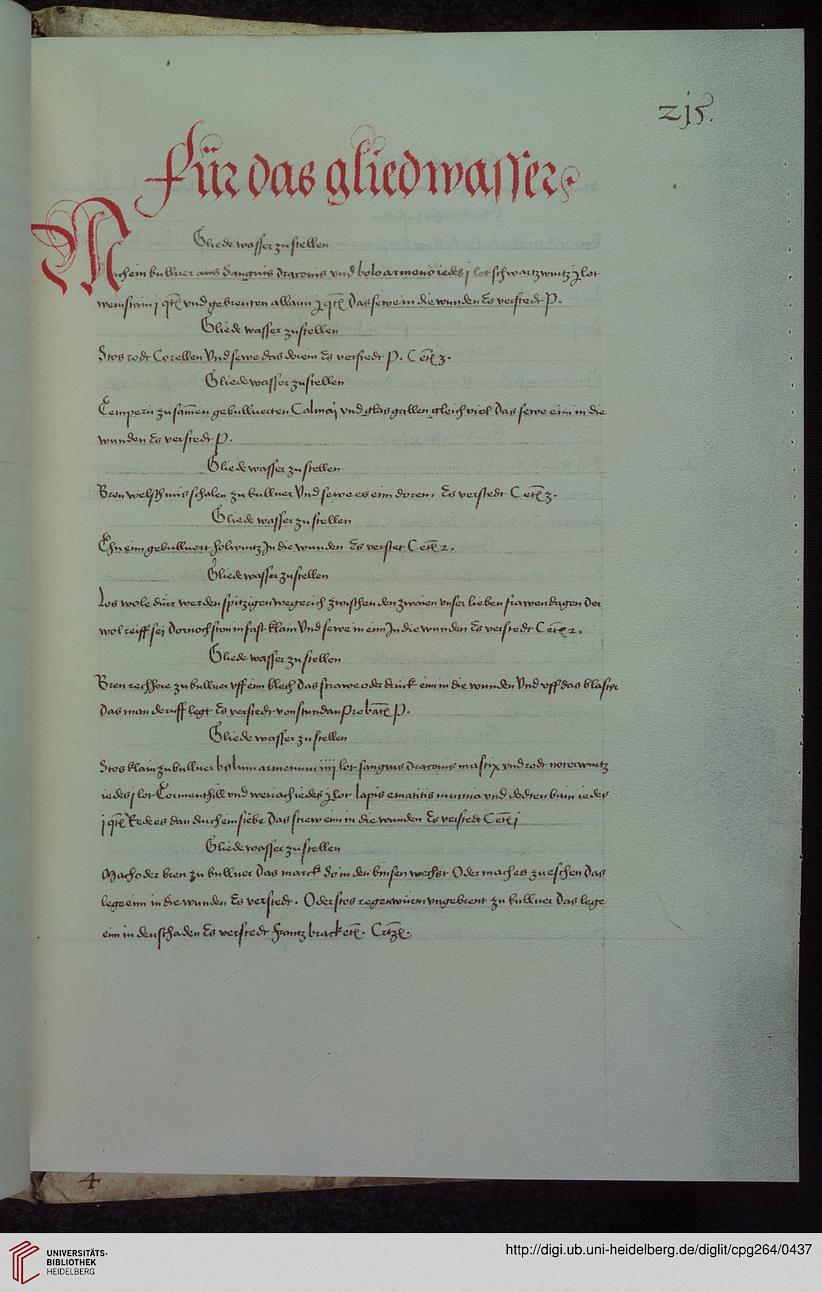 zj5.
Für das gliedwasser
Gliede wasser zu stellen
Mach ein bullver aus sanguis draconis und bolo armeno iedes j lot schwartzwurtz lot
weinstain j qt und gebrenten allaun qt Das sewe in die wunden Es verstedt P.
Gliede wasser zustellen
Stos rodt Corellen Und sewe das dorein Es verstedt P. C etc 3.
Gliede wasser zustellen
Temperir zusamen gebullverten Calmaj und glas gallen gleich viel Das sewe einn in die
wunden Es verstedt P.
Gliede wasser zu stellen
Bren welsch nus schalen zu bullver Und sewe es ein dorein Es verstedt C etc 3.
Gliede wasser zu stellen
Thu einn gebullvert holwurtz In die wunden Es verstet C etc 2.
Gliede wasser zustellen
Los wole dürr werden spitzigen wegerich zwischen den zwaien unser lieben frawen dagen Der
wol reiff sei Dornoch stos in fast klain Und sewe in einn In die wunden Es verstedt C etc 2.
Gliede wasser zu stellen
Bren rechhore zu bullver uff einn blech Das strawe oder druck einn in die wunden Und uff das blaster
Das man doruff legt Es verstedt von stundan Probatu P.
Gliede wasser zu stellen
Stos klain zu bullver bolum armenum iiij lot sanguis draconis mastix und rodt noterwurtz
iedes j lot Tormenthill und weirach iedes lot lapis ematitis mumia und dodten bain iedes
j qt Rede es dan durch ein siebe Das strew einn in die wunden Es verstedt C etc j
Gliede wasser zu stellen
Mach oder bren zu bullver Das marck do in den binsen wechst Oder mach es zu eschen Das
lege einn in die wunden Es verstedt. Oder stos regenwürm ungebrent zu bullver Das lege
einn in den schaden Es verstedt Frantz brack etc.
4
UNIVERSITÄTS-
BIBLIOTHEK
HEIDELBERG
http://digi.ub.uni-heidelberg.de/diglit/cpg264/0437